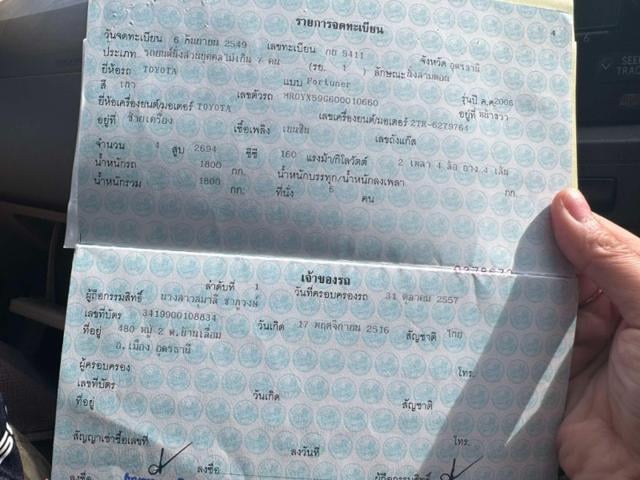 4
รายการจดทะเบียน
วันจดทะเบียน 6 กันยายน 2549 เลขทะเบียน กย 5411 จังหวัด อุดรธานี
ประเภท รถยนต์นั่งส่วนบุคคลไม่เกิน 7 คน (รย. 1 ) ลักษณะ นั่งสามตอน
ยี่ห้อรถ TOYOTA แบบ Fortuner รุ่นปี ค.ศ 2006
สี เทา เลขตัวรถ MR0YX59G600010660 อยู่ที่
ยี่ห้อเครื่องยนต์/มอเตอร์ TOYOTA เลขเครื่องยนต์/มอเตอร์ 2TR-6279764
อยู่ที่ ซ้ายเครื่อง เชื้อเพลิง เบนซิน เลขถังแก๊ส
จำนวน 4 สูบ 2694 ซีซี 160 แรงม้า/กิโลวัตต์ 2 เพลา 4 ล้อ ยาง 4 เส้น
น้ำหนักรถ 1800 กก. น้ำหนักบรรทุก/น้ำหนักลงเพลา กก.
น้ำหนักรวม 1800 กก. ที่นั่ง คน
เจ้าของรถ
ลำดับที่ 1 วันที่ครอบครองรถ 31 ตุลาคม 2557
ผู้ถือกรรมสิทธิ์ นางสาวสุมาลี ชาภูวงษ์
เลขที่บัตร 3419900108834 วันเกิด 17 พฤศจิกายน 2516 สัญชาติ ไทย
ที่อยู่ 480 หมู่ 2 ต.บ้านเลื่อม
อ.เมือง อุดรธานี โทร.
ผู้ครอบครอง
เลขที่บัตร วันเกิด สัญชาติ
ที่อยู่
โทร.
สัญญาเช่าซื้อเลขที่ ลงวันที่
ลงชื่อ ลงชื่อ ผู้ถือกรรมสิทธิ์